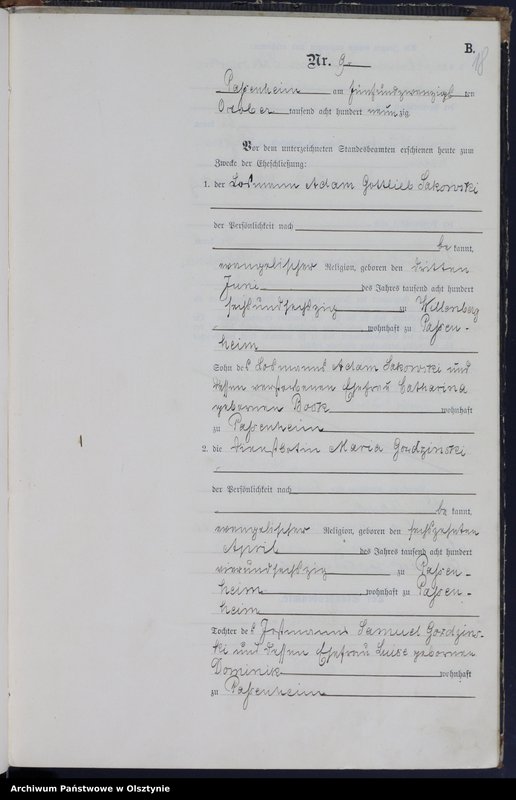 B.
18
Nr. 9.
Passenheim am fünfundzwanzigsten
October tausend acht hundert neunzig.
Vor dem unterzeichneten Standesbeamten erschienen heute zum
Zwecke der Eheschließung:
1. der Losmann Adam Gottlieb Sakowski
der Persönlichkeit nach
be kannt,
evangelischer Religion, geboren den dritten
Juni des Jahres tausend acht hundert
sechsundsechszig zu Willenberg
, wohnhaft zu Passen-
heim
Sohn des Losmanns Adam Sakowski und
dessen verstorbenen Ehefrau Catharina
geborenen Book wohnhaft
zu Passenheim
2. die Dienstbotin Maria Gozdzinski
der Persönlichkeit nach
be kannt,
evangelischer Religion, geboren den sechszehnten
April des Jahres tausend acht hundert
vierundsechszig zu Passen-
heim, wohnhaft zu Passen-
heim
Tochter des Samuel Gozdzins-
ki und dessen Ehefrau Luise geborenen
Dominik wohnhaft
zu Passenheim
Archiwum Państwowe w Olsztynie